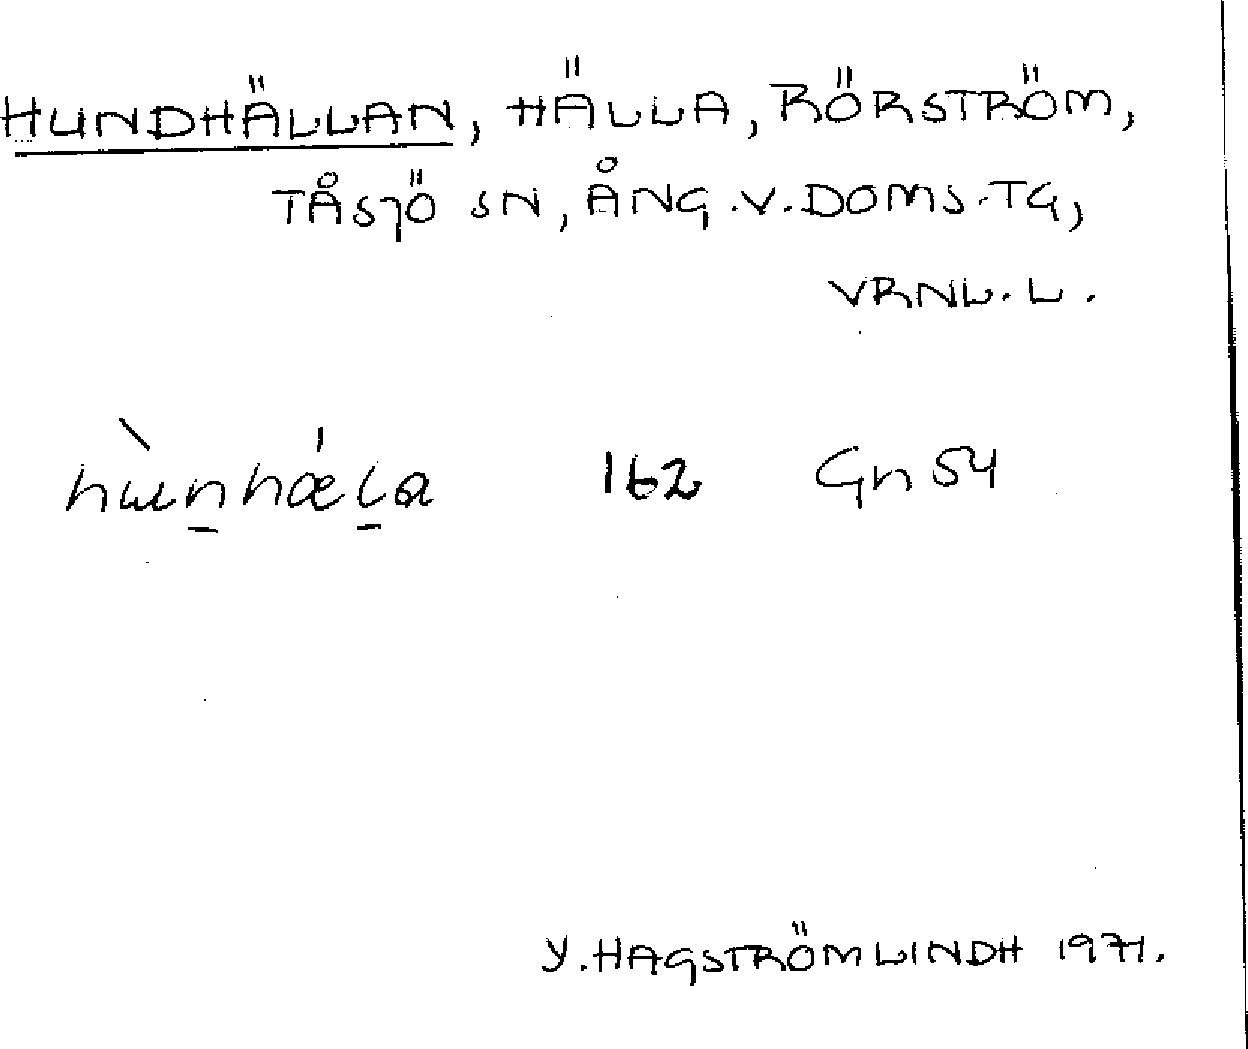 HUNDHÄLLAN, HÄLLA, RÖRSTRÖM,
TÅSJÖ SN, ÅNG.V.DOMS.TG,
VRNL.L.
hùn̲hǽl̲a 162 Gn 54
Y. HAGSTRÖM LINDH 1971.